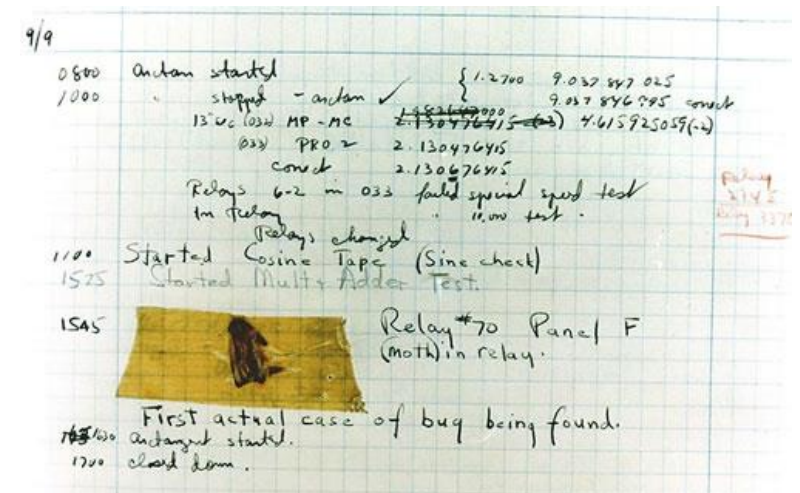 9/9
0800 Antan started
1000 " stopped - antan ✓ { 1.2700 9.037 847 025
9.037 846 795 conect
13"uc (032) MP - MC 2.130476415 (-3) 4.615925059(-2)
(033) PRO 2 2.130476415
conect 2.130676415
Relays 6-2 in 033 failed special speed test
In Relay " 10,000 test.
Relays changed
Relay
3370
1100 Started Cosine Tape (Sine check)
1525 Started Mult + Adder Test.
1545 Relay #70 Panel F
(moth) in relay.
First actual case of bug being found.
1630 antangent started.
1700 closed down.